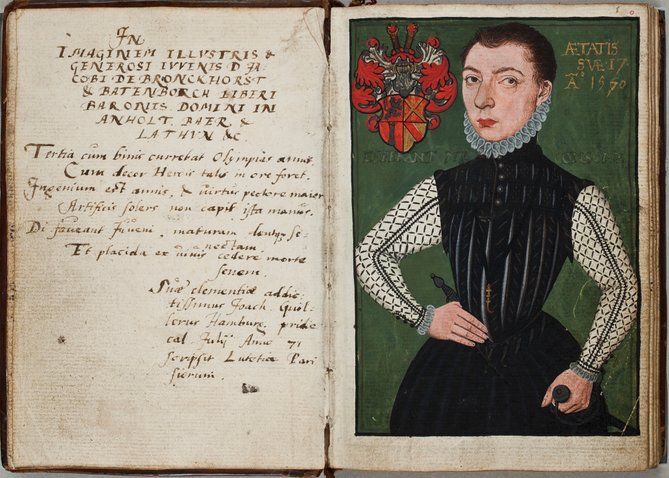 IN
IMAGINEM ILLVSTRIS &
GENEROSI IVVENIS D. IA
COBI DE BRONCKHORST
& BATENBORCH LIBERI
BARONIS DOMINI IN
ANHOLT. BAER &
LATHVN &c
Tertia cum binis currebat Olympias annis
Cum decor Herois talis in ore foret.
Ingenium est annis, & virtus pectore maior
Artificis solers non capit ista manus.
Di faveant juveni, maturam dentque se-
nectam.
Et placida ex vivis cedere morte
senem.
Suae clementiae addic-
tissimus Joach.
Hamburg. pridie
cal. Julij Anno 71
scripsit Lutetiae Pari
siorum.
ÆTATIS
SVÆ 17
Aº 1570
5